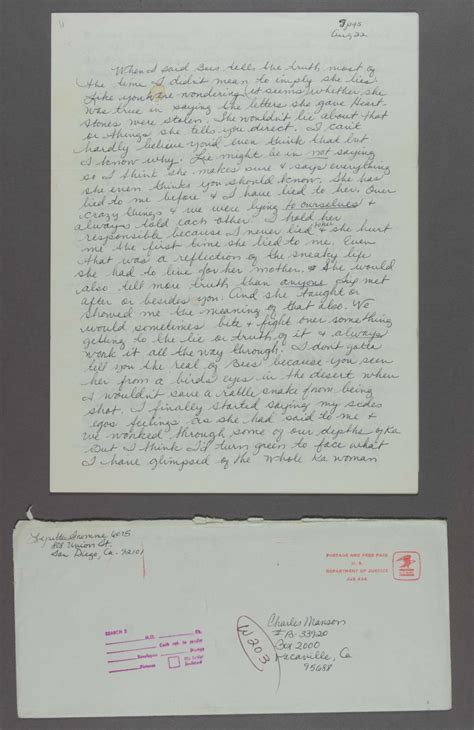 3 pgs
Aug 22
When I said Bees tells the truth most of
the time I didn't mean to imply she lies
like you are wondering it seems whether she
was true in saying the letters she gave Heart-
Stones were stolen. She wouldn't lie about that
or things she tells you direct. I can't
hardly believe you'd even think that but
I know why. Lie might be in not saying
so I think she makes sure & says everything
she even thinks you should know. She has
lied to me before & I have lied to her. Over
crazy things & we were lying to ourselves &
always told each other. I hold her
responsible because I never lied & she hurt
me the first time she lied to me. Even
that was a reflection of the sneaky life
she had to live for her mother. She would
also tell more truth than anyone I'd met
after or besides you. And she taught or
showed me the meaning of that also. We
would sometimes bite & fight over something
getting to the lie or truth of it & always
work it all the way through. I don't gotta
tell you the real of Bees because you seen
her from a birds eyes in the desert when
I wouldn't save a rattle snake from being
shot. I finally started saying my
egos feelings as she had said to me &
we worked through some of our depths of Ka
But I think I'd turn green to face what
I have glimpsed of the whole Ka woman
808 Union St.
San Diego, Ca. 92101
POSTAGE AND FEES PAID
U. S.
DEPARTMENT OF JUSTICE
JUS 435
W203
Charles Manson
# B-33920
Box 2000
Vacaville, Ca
95688